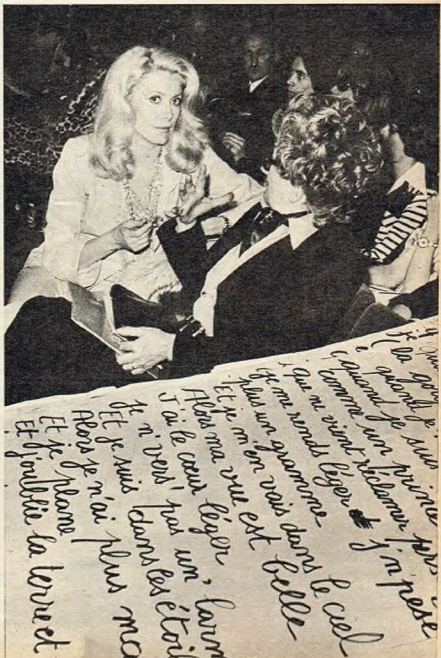 je la
quand je
quand je suis
comme un prince
que ne vient réclamer per
je me rends léger j'n'pèse
plus un gramme
Et je m'en vais dans le ciel
Alors ma vue est belle
J'ai le cœur léger
Je n'vers' pas un' larm
Et je suis dans les étoil
Alors je n'ai plus ma
Et je plane
Et j'oublie la terre et